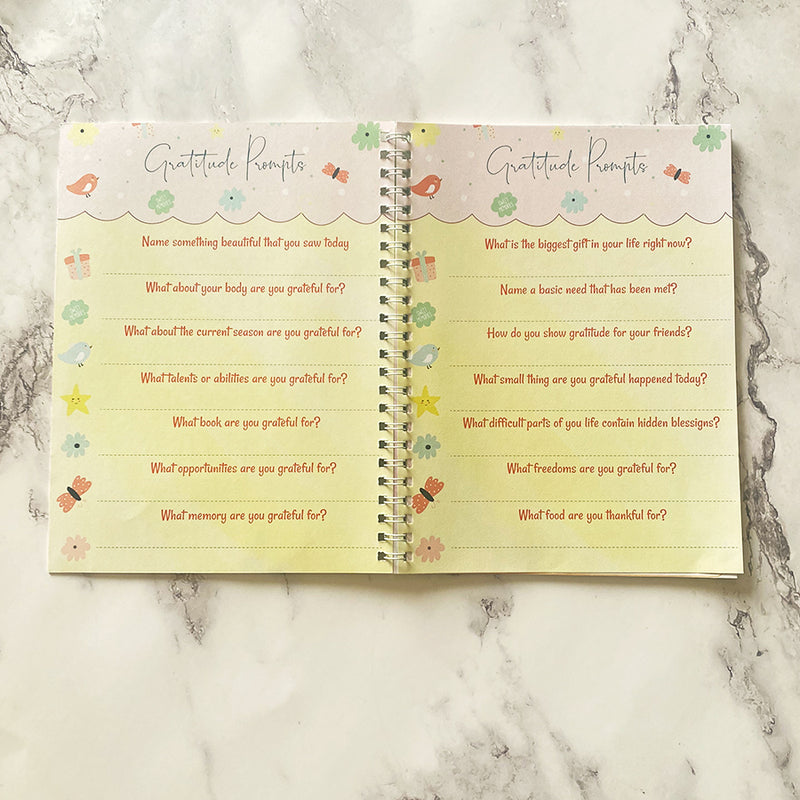 Gratitude Prompts
Name something beautiful that you saw today
What about your body are you grateful for?
What about the current season are you grateful for?
What talents or abilities are you grateful for?
What book are you grateful for?
What opportunities are you grateful for?
What memory are you grateful for?
Gratitude Prompts
What is the biggest gift in your life right now?
Name a basic need that has been met?
How do you show gratitude for your friends?
What small thing are you grateful happened today?
What difficult parts of you life contain hidden blessigns?
What freedoms are you grateful for?
What food are you thankful for?